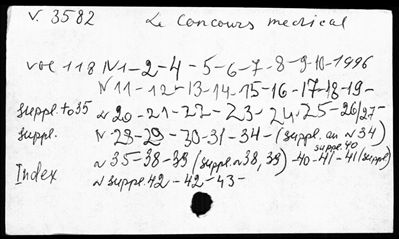 V. 3582 Le Concours medical
vol 118 N1-2-4-5-6-7-8-9-10-1996
N11-12-13-14-15-16-17-18-19-
suppl. to 35 N20-21-22-23-24-25-26/27-
suppl. N 28-29-30-31-34-(suppl. au N34)
suppl. 40
N35-38-39 (suppl. N38, 39) -40-41-41 (suppl)
Index N suppl. 42-42-43-